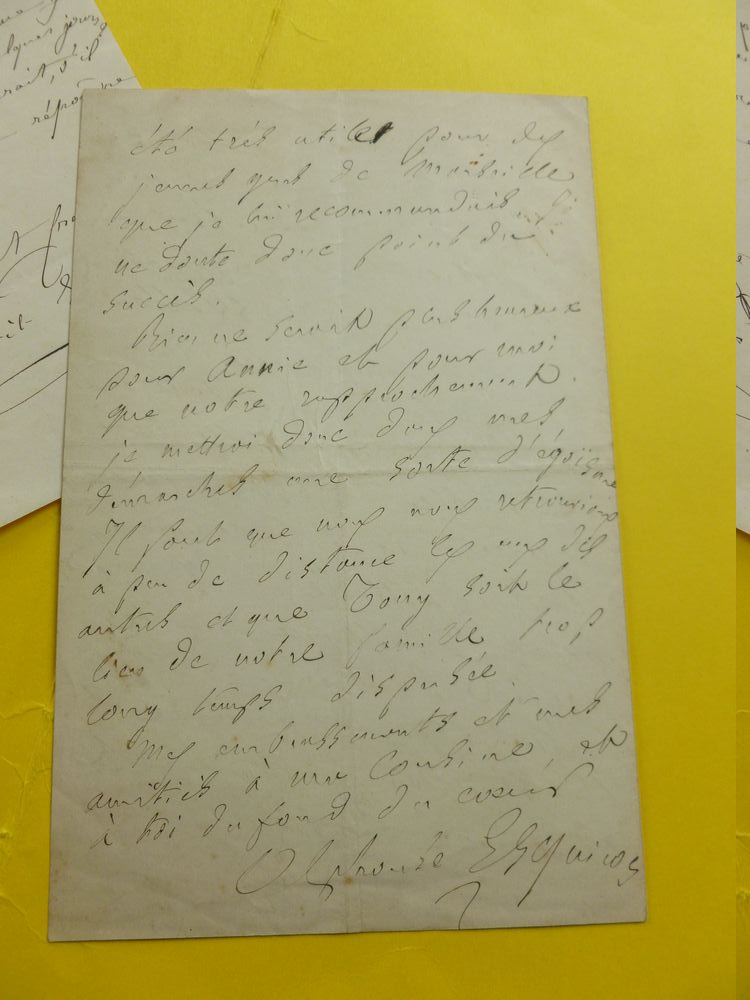 ques jours
répon
été très utiles pour des
jeunes gens de Marseille
que je lui recommandais
ne doute donc point du
succès.
Rien ne serait plus heureux
pour Annie et pour moi
que notre rapprochement.
je mettrai donc dans mes
démarches une sorte d'égoïsme
Il faut que nous nous retrouvions
à peu de distance les uns des
autres et que Tony soit le
lien de notre famille trop
long temps dispersée.
Mes embrassements et mes
amitiés à ma Cousine, et
à toi du fond du coeur
Alphonse Esquiros